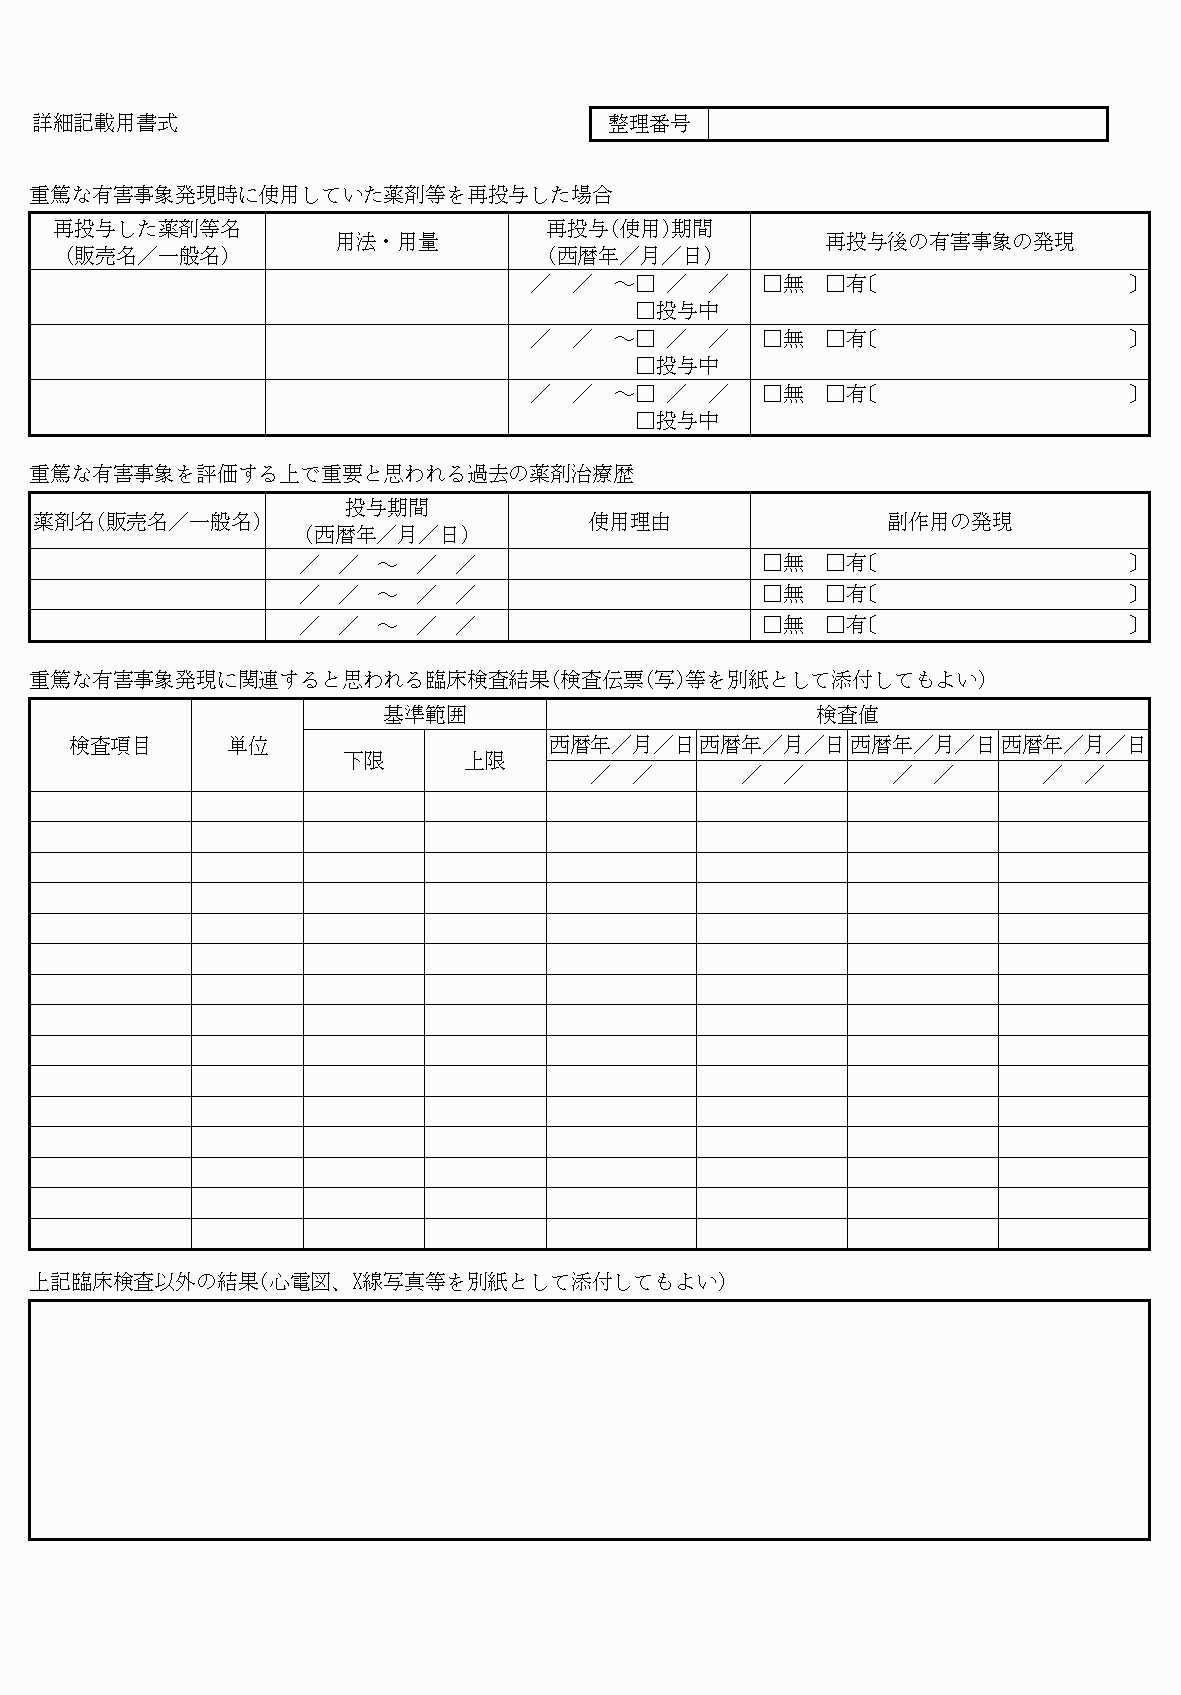 詳細記載用書式
整理番号
重篤な有害事象発現時に使用していた薬剤等を再投与した場合
再投与した薬剤等名
(販売名／一般名)
用法・用量
再投与(使用)期間
(西暦年／月／日)
再投与後の有害事象の発現
／ ／ ～□ ／ ／
□投与中
□無 □有〔 〕
／ ／ ～□ ／ ／
□投与中
□無 □有〔 〕
／ ／ ～□ ／ ／
□投与中
□無 □有〔 〕
重篤な有害事象を評価する上で重要と思われる過去の薬剤治療歴
薬剤名(販売名／一般名)
投与期間
(西暦年／月／日)
使用理由
副作用の発現
／ ／ ～ ／ ／ □無 □有〔 〕
／ ／ ～ ／ ／ □無 □有〔 〕
／ ／ ～ ／ ／ □無 □有〔 〕
重篤な有害事象発現に関連すると思われる臨床検査結果(検査伝票(写)等を別紙として添付してもよい)
検査項目
単位
基準範囲
下限 上限
検査値
西暦年／月／日 西暦年／月／日 西暦年／月／日 西暦年／月／日
／ ／ ／ ／ ／ ／ ／ ／
上記臨床検査以外の結果(心電図、X線写真等を別紙として添付してもよい)